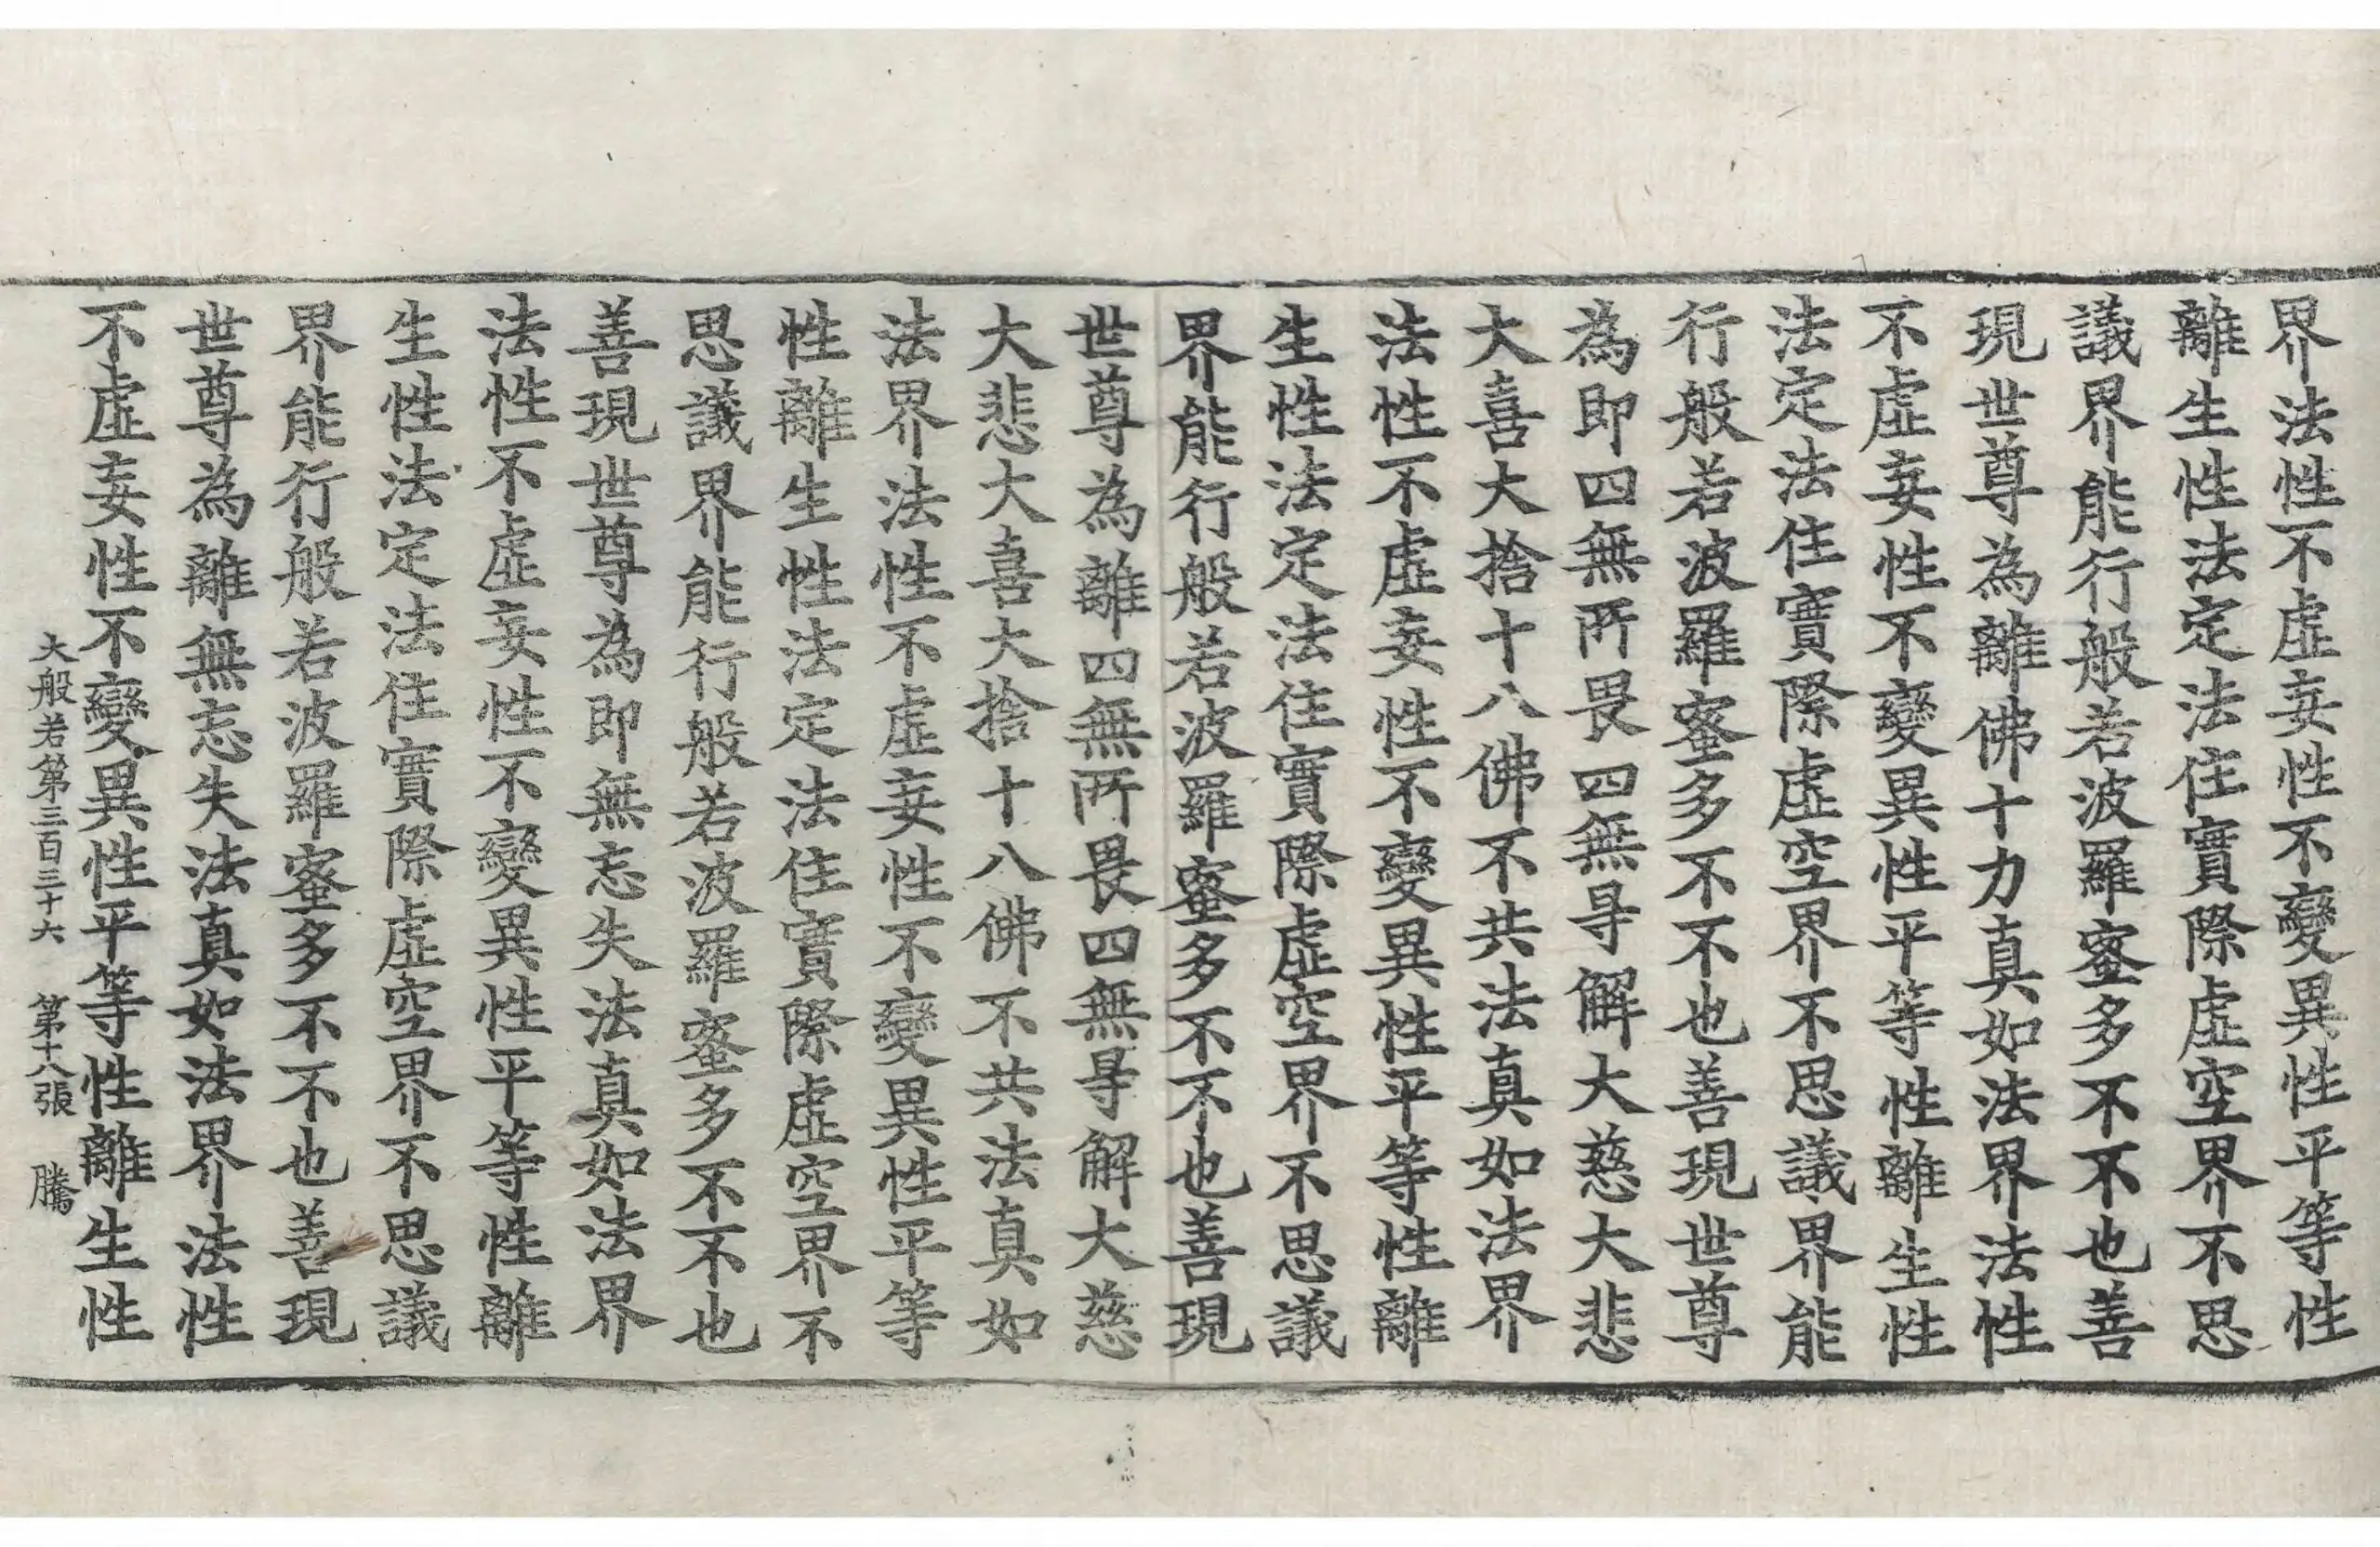 界法性不虛妄性不變異性平等性
離生性法定法住實際虛空界不思
議界能行般若波羅蜜多不不也善
現世尊為離佛十力真如法界法性
不虛妄性不變異性平等性離生性
法定法住實際虛空界不思議界能
行般若波羅蜜多不不也善現世尊
為即四無所畏四無㝵解大慈大悲
大喜大捨十八佛不共法真如法界
法性不虛妄性不變異性平等性離
生性法定法住實際虛空界不思議
界能行般若波羅蜜多不不也善現
世尊為離四無所畏四無㝵解大慈
大悲大喜大捨十八佛不共法真如
法界法性不虛妄性不變異性平等
性離生性法定法住實際虛空界不
思議界能行般若波羅蜜多不不也
善現世尊為即無忘失法真如法界
法性不虛妄性不變異性平等性離
生性法定法住實際虛空界不思議
界能行般若波羅蜜多不不也善現
世尊為離無忘失法真如法界法性
不虛妄性不變異性平等性離生性
大般若第三百三十六 第十八張 騰